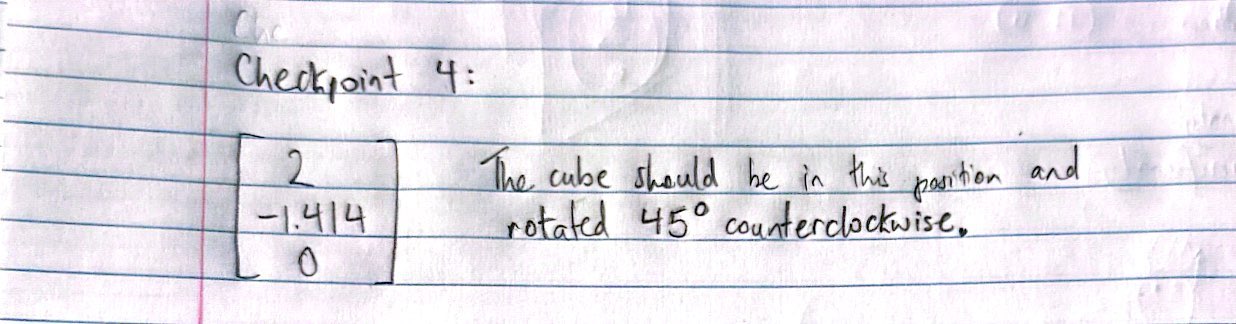 Chc
Checkpoint 4:
2
-1.414
0
The cube should be in this position and
rotated 45° counterclockwise.